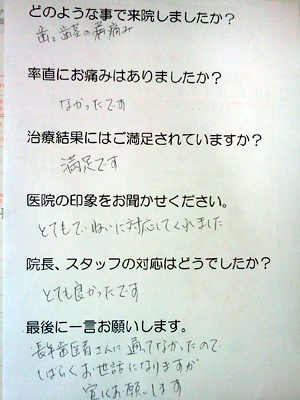 どのような事で来院しましたか？
歯と歯茎の痛み
率直にお痛みはありましたか？
なかったです
治療結果にはご満足されていますか？
満足です
医院の印象をお聞かせください。
とてもていねいに対応してくれました
院長、スタッフの対応はどうでしたか？
とても良かったです
最後に一言お願いします。
長年歯医者さんに通ってなかったので
しばらくお世話になりますが
宜しくお願いします